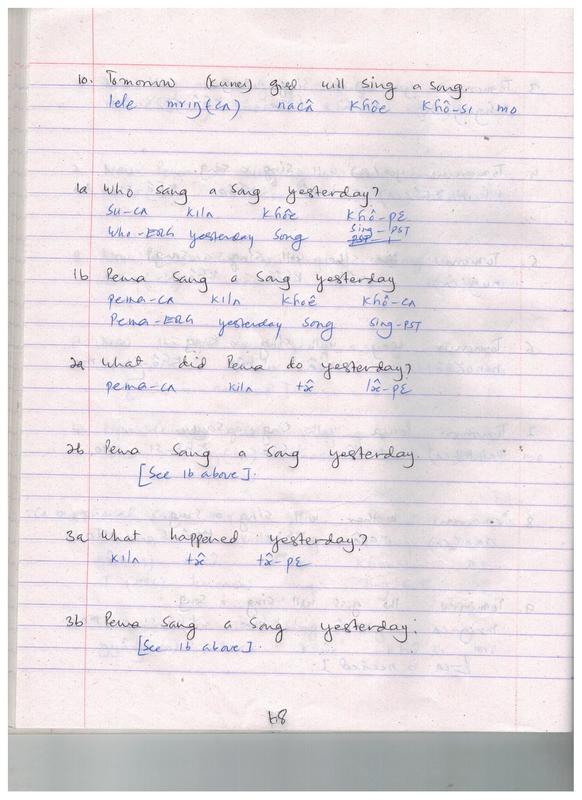 10. Tomorrow (Kunes) girl will sing a song.
lele mriŋ(cʌ) nacâ khôe khô-si mo
1a Who sang a song yesterday?
su-cʌ kilʌ khôe khô-pɛ
Who-ERG yesterday song Sing-PST
1b Pema Sang a Song yesterday
pema-cʌ kilʌ khoê khô-cʌ
Pema-ERG yesterday song sing-PST
2a What did Pema do yesterday?
pema-cʌ kilʌ
2b Pema Sang a Song yesterday.
[See 1b above].
3a What happened yesterday?
kilʌ
3b Pema Sang a Song yesterday.
[See 1b above].